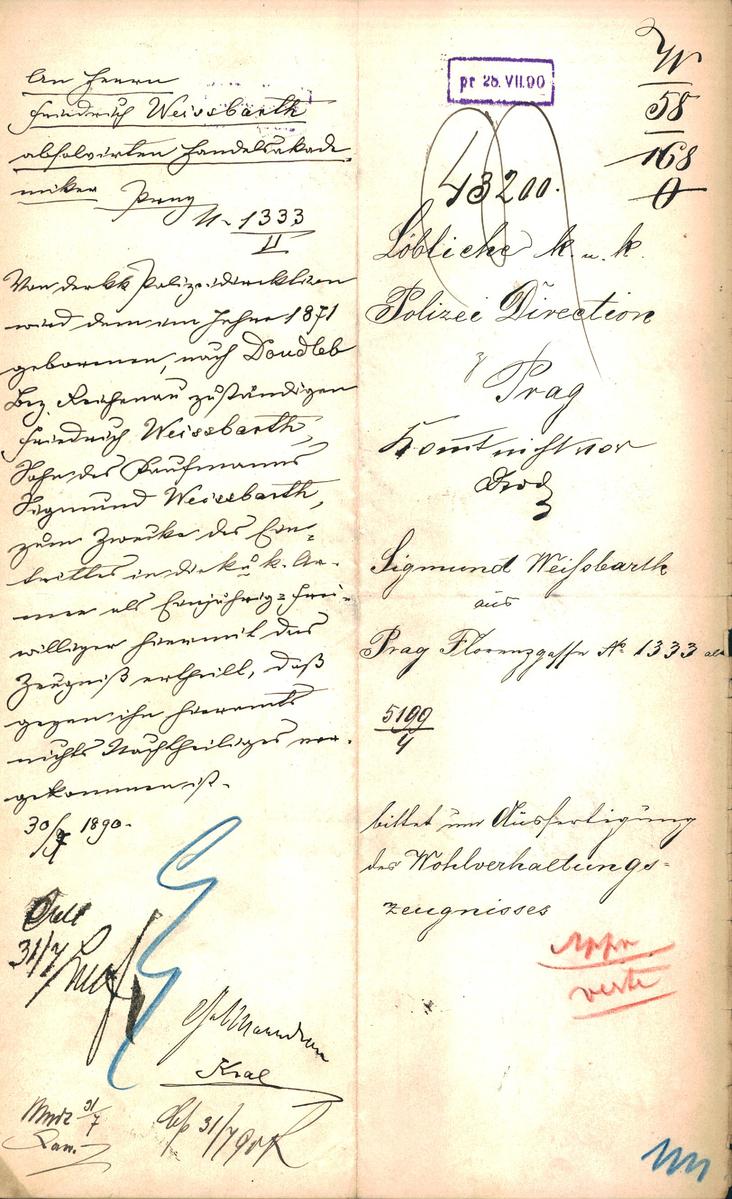 An Herrn
Friedrich Weissbarth
absolvirten Handelsakade-
miker Prag
N. 1333
II
Von der kk Polizeidirektion
wird dem im Jahre 1871
geborenen, nach Doudleb
Bez. Reichenau zuständigen
Friedrich Weissbarth,
Sohn des Kaufmanns
Sigmund Weissbarth,
zum Zwecke des Ein-
trittes in die k. u. k. Ar-
mee als Einjährig-Frei-
williger hiermit das
Zeugniß ertheilt, daß
gegen ihn hieramts
nichts Nachtheiliges vor-
gekommen ist.
30/7 1890.
31/7
Kral
Mudz 31/7
31/7 90
pr 28. VII. 90
W
58
168
0
43200.
Löbliche k. u. k.
Polizei Direction
z
Prag
Komt nicht vor
Sigmund Weißbarth
aus
Prag Florenzgasse No 1333 alt
5199
4
bittet um Ausfertigung
des Wohlverhaltungs-
zeugnisses